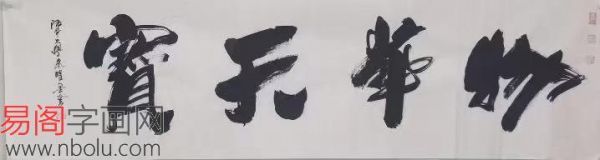 物華天寳
易阁字画网
www.nbolu.com